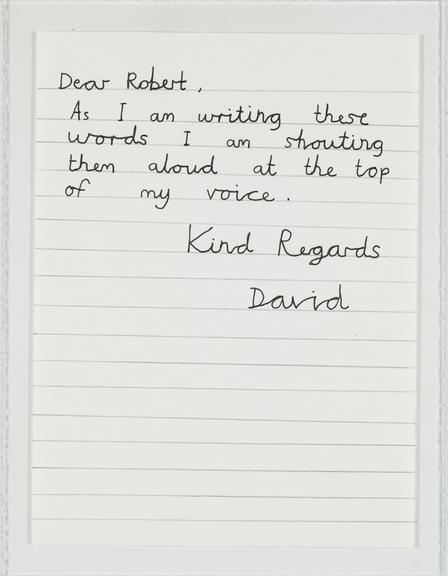 Dear Robert,
As I am writing these
words I am shouting
them aloud at the top
of my voice.
Kind Regards
David